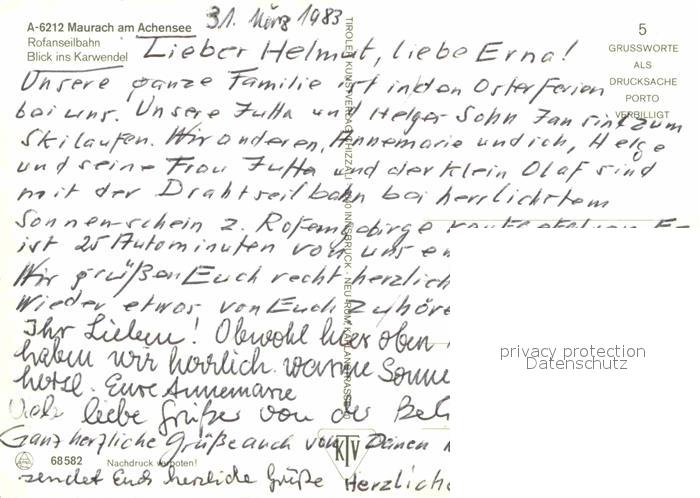 A-6212 Maurach am Achensee
Rofanseilbahn
Blick ins Karwendel
31. März 1983
5
GRUSSWORTE
ALS
DRUCKSACHE
PORTO
VERBILLIGT
Lieber Helmut, liebe Erna!
Unsere ganze Familie ist in den Osterferien
bei uns. Unsere Jutta und Helges Sohn Jan sind zum
Skilaufen. Wir anderen, Annemarie und ich, Helge
und seine Frau Jutta und der klein Olaf sind
mit der Drahtseilbahn bei herrlichstem
Sonnenschein z. Rofangebirge
ist 25 Autominuten von uns
Wir grüßen Euch recht herzlich
wieder etwas von Euch zu höre
Ihr Lieben! Obwohl hier oben
haben wir herrlich warme Sonne
Eure Annemarie
Viele liebe Grüße von der
Ganz herzliche Grüße auch von
sendet Euch herzliche Grüße Herzliche
TIROLER KUNSTVERLAG CHIZZALI, 6020 INNSBRUCK - NEU-RUM, KAPLANSTRASSE
KTV
68582 Nachdruck verboten!
privacy protection
Datenschutz